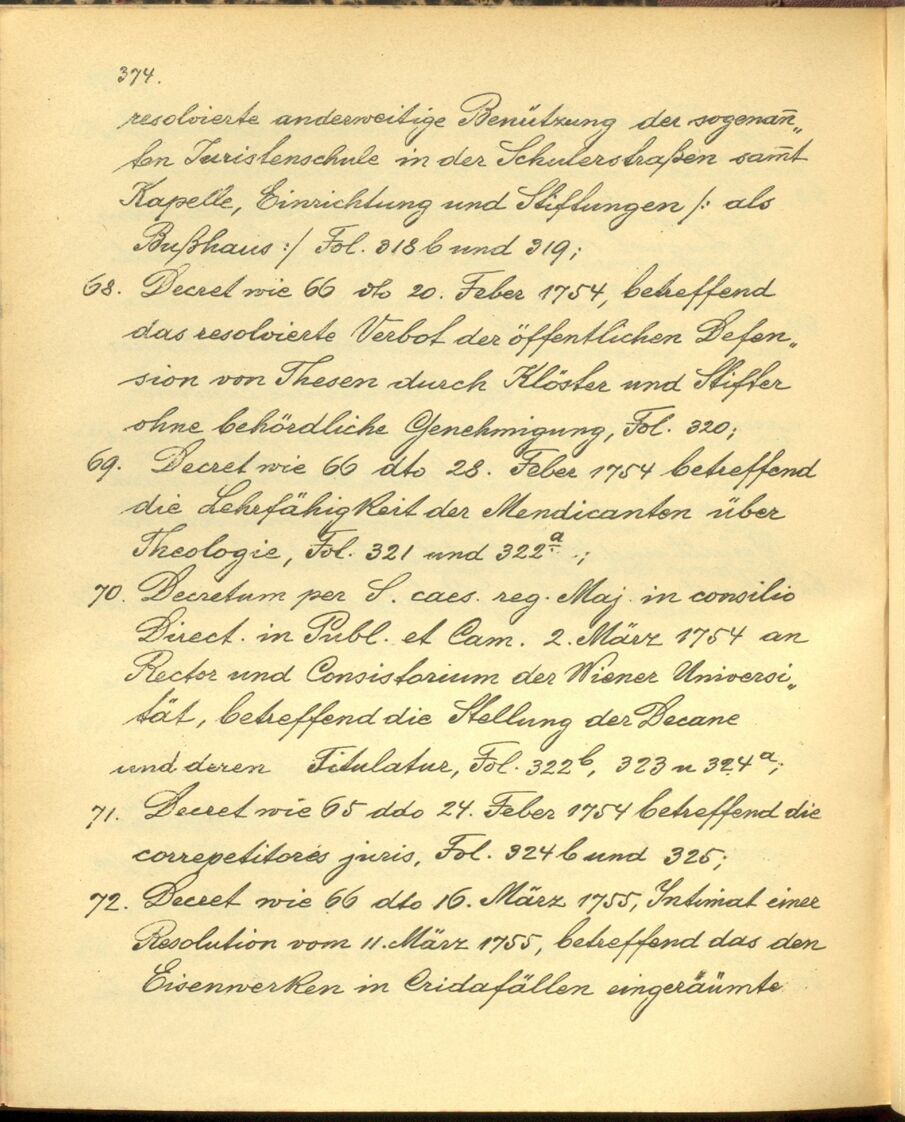 374.
resolvierte anderweitige Benützung der sogenan̄„
ten Juristenschule in der Schulerstraßen sam̄t
Kapelle, Einrichtung und Stiftungen /: als
Bußhaus :/ Fol. 318 b und 319;
68. Decret wie 66 dto 20. Feber 1754, betreffend
das resolvierte Verbot der öffentlichen Defen„
sion von Thesen durch Klöster und Stifter
ohne behördliche Genehmigung, Fol. 320;
69. Decret wie 66 dto 28. Feber 1754 betreffend
die Lehrfähigkeit der Mendicanten über
Theologie, Fol. 321 und 322a.;
70. Decretum per S. caes. reg. Maj. in consilio
Direct. in Publ. et Cam. 2. März 1754 an
Rector und Consistorium der Wiener Universi„
tät, betreffend die Stellung der Decane
und deren Titulatur, Fol. 322b, 323 u 324a;
71. Decret wie 65 ddo 24. Feber 1754 betreffend die
correpetitores juris, Fol. 324 b und 325;
72. Decret wie 66 dto 16. März 1755, Intimat einer
Resolution vom 11. März 1755, betreffend das den
Eisenwerken in Cridafällen eingeräumte